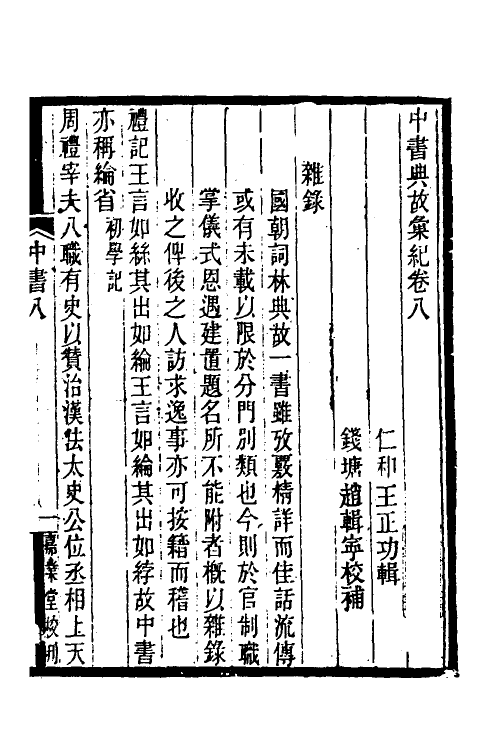 中書典故彙紀卷八
仁和王正功輯
錢塘趙輯寧校補
雜錄
國朝詞林典故一書雖攷覈精詳而佳話流傳
或有未載以限於分門別類也今則於官制職
掌儀式恩遇建置題名所不能附者概以雜錄
收之俾後之人訪求逸事亦可按籍而稽也
禮記王言如絲其出如綸王言如綸其出如綍故中書
亦稱綸省初學記
周禮宰夫八職有史以贊治漢法太史公位丞相上天
中書八
一
嘉業堂校刊